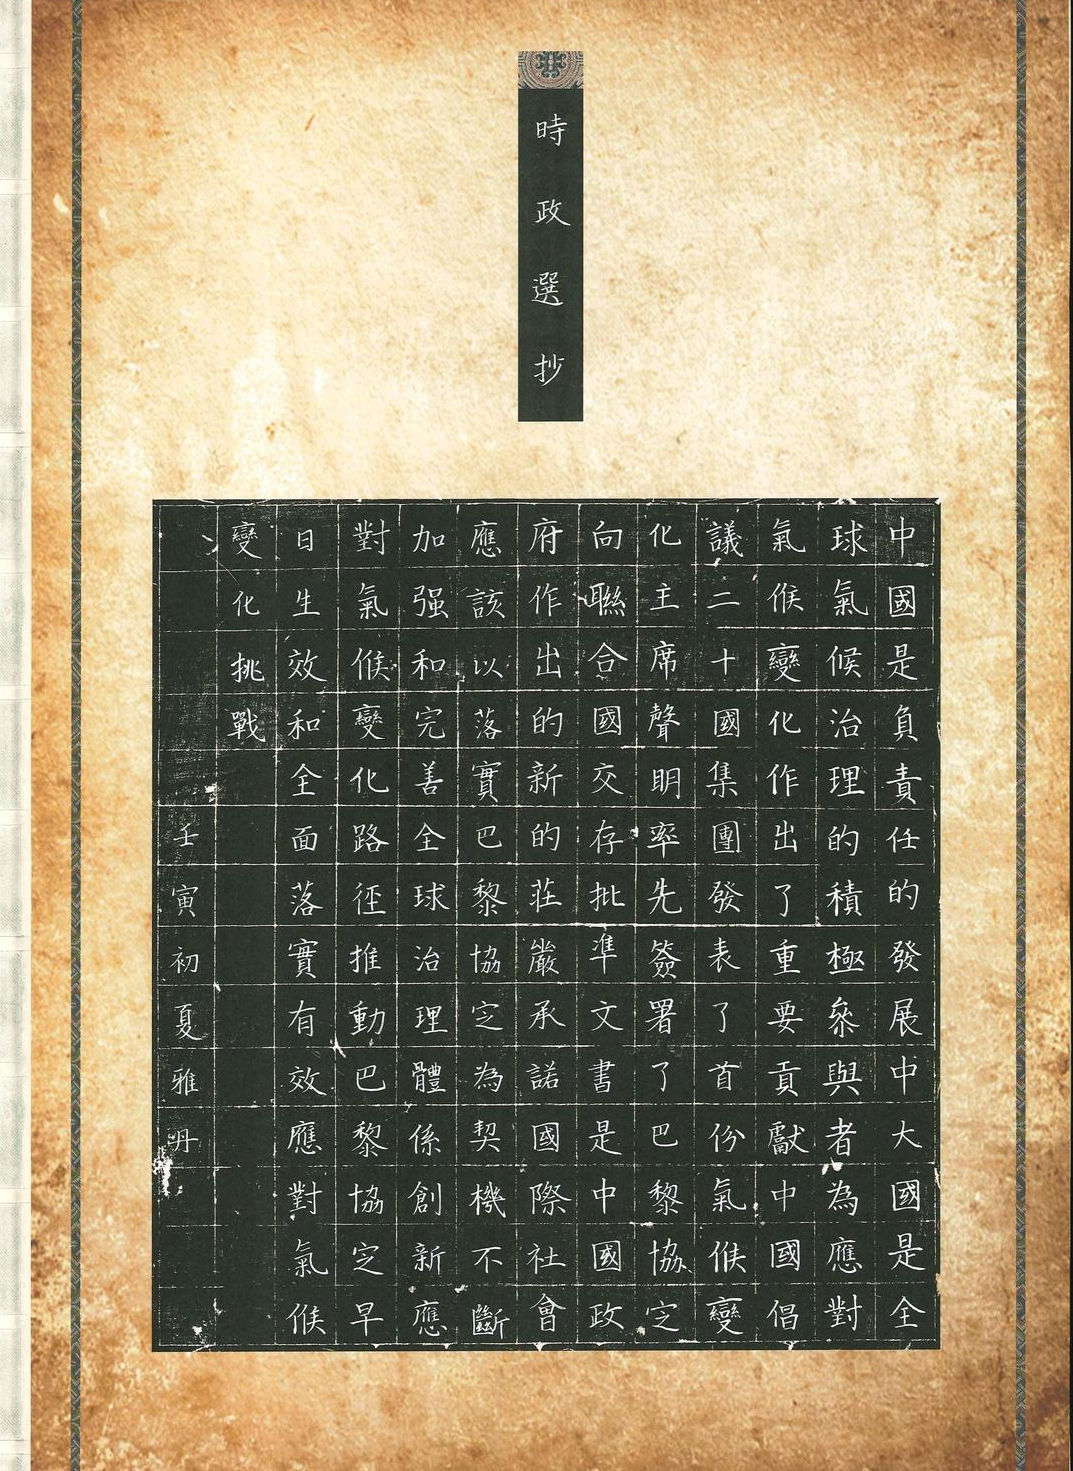 時政選抄
中國是負責任的發展中大國是全
球氣候治理的積極參與者為應對
氣候變化作出了重要貢獻中國倡
議二十國集團發表了首份氣候變
化主席聲明率先簽署了巴黎協定
向聯合國交存批準文書是中國政
府作出的新的莊嚴承諾國際社會
應該以落實巴黎協定為契機不斷
加强和完善全球治理體係創新應
對氣候變化路徑推動巴黎協定早
日生效和全面落實有效應對氣候
變化挑戰
壬寅初夏雅丹